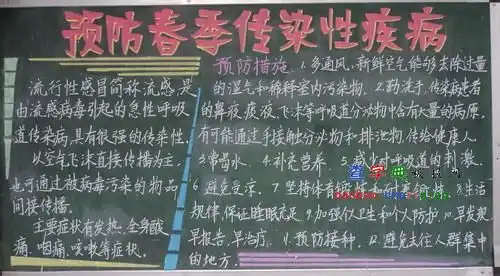 预防春季传染性疾病
流行性感冒简称流感是
由流感病毒引起的急性呼吸
道传染病,具有很强的传染性,
以空气飞沫直接传播为主,
也可通过被病毒污染的物品
间接传播。
主要症状有发热、全身酸
痛、咽痛、咳嗽等症状。
预防措施 1.多通风、新鲜空气能够去除过量
的湿气和稀释室内污染物. 2.勤洗手,传染病患者
的鼻液、痰液、飞沫等呼吸道分泌物中含有大量的病原,
有可能通过手接触分泌物和排泄物,传给健康人.
3.常喝水. 4.补充营养. 5.减少对呼吸道的刺激.
6.避免受凉. 7.坚持体育锻炼和耐寒 8.生活
规律,保证睡眠充足. 9.加强个人卫生和个人防护. 10.早发现
早报告,早治疗. 11.预防接种. 12.避免去往人群集中
的地方.
查字典